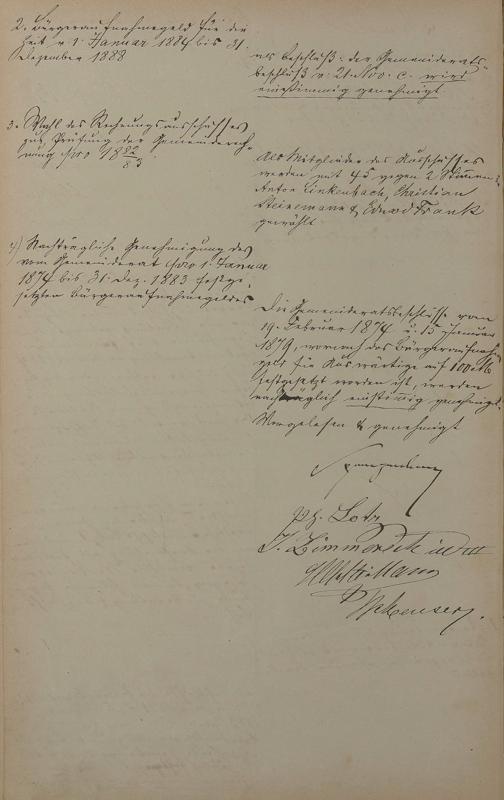 2. Bürgeraufnahmegeld für die
Zeit v. 1. Januar 1884 bis 31.
Dezember 1888
als Beschluß: der Gemeinderats-
beschluß v. 21. Nov. c. wird
einstimmig genehmigt
3. Wahl des Rechnungsausschusses
zur Prüfung der Gemeinderech-
nung pro 1882/83.
Als Mitglieder des Ausschusses
werden mit 45 gegen 2 Stimmen
Anton Linkenbach, Christian
Steinemann & Eduard Frank
gewählt
4) Nachträgliche Genehmigung des
vom Gemeinderat pro 1. Januar
1874 bis 31. Dez. 1883 festge-
setzten Bürgeraufnahmegeldes
Die Gemeinderatsbeschlüsse vom
19. Februar 1874 u. 15 Januar
1879, wornach das Bürgeraufnahme
geld für Auswärtige auf 100 M
festgesetzt worden ist, werden
nachträglich einstimmig genehmigt.
Vorgelesen & genehmigt
Ph. Lotz